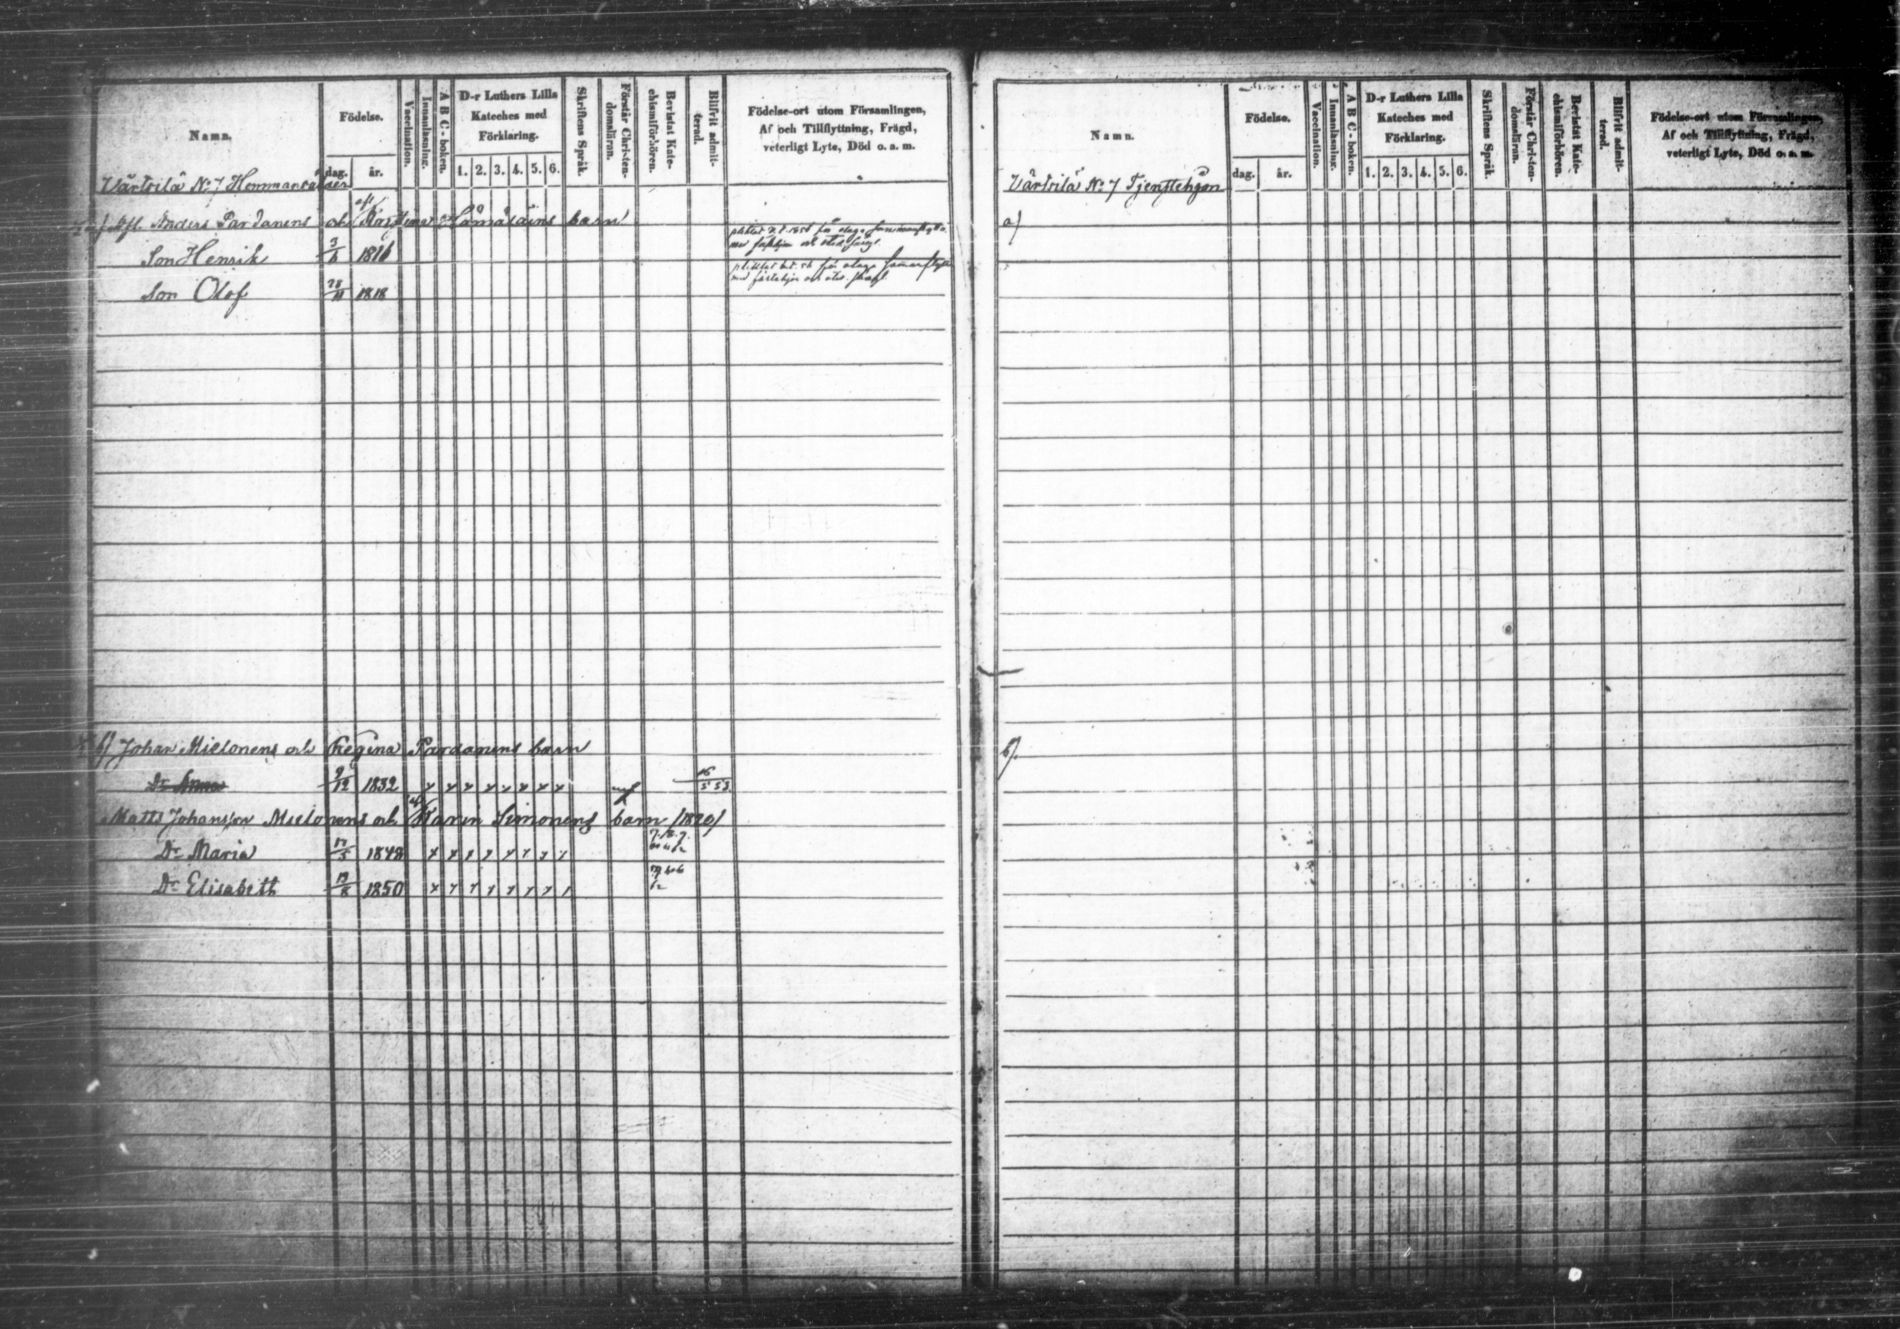 Namn.
Födelse.
dag.
år.
Vaccination.
Innanläsning.
A B C-boken.
D-r Luthers Lilla
Kateches med
Förklaring.
1. 2. 3. 4. 5. 6.
Skriftens Språk.
Förstår Christen-
domsläran.
Bevistat Kate-
chismiförhören.
Blifvit admit-
terad.
Födelse-ort utom Församlingen,
Af och Tillflyttning, Frägd,
veterligt Lyte, Död o. a. m.
Värtsilä No 7
Anders Pardanens och barn
Son Henrik
Son Olof 1818
b) Johan Mielonens och Regina Pardanens barn
Dr Anna 9/12 1832
Matts Johansson Mielonens och Karin Simonens barn /1820/
Dr Maria 17/5 1848
Dr Elisabeth 1850
Namn.
Födelse.
dag.
år.
Vaccination.
Innanläsning.
A B C-boken.
D-r Luthers Lilla
Kateches med
Förklaring.
1. 2. 3. 4. 5. 6.
Skriftens Språk.
Förstår Christen-
domsläran.
Bevistat Kate-
chismiförhören.
Blifvit admit-
terad.
Födelse-ort utom Församlingen,
Af och Tillflyttning, Frägd,
veterligt Lyte, Död o. a. m.
Värtsilä No 7 Tjenstehjon
a)
b)